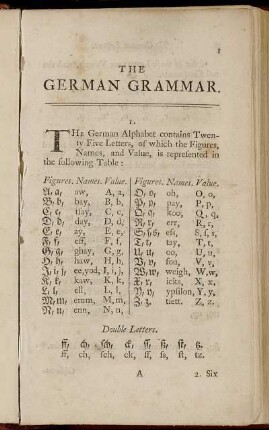 1
THE
GERMAN GRAMMAR.
I.
THE German Alphabet contains Twen-
ty Five Letters, of which the Figures,
Names, and Value, is represented in
the following Table:
Figures. Names. Value. | Figures. Names. Value.
A, a, aw, A, a, | O, o, oh, O, o,
B, b, bay, B, b, | P, p, pay, P, p,
C, c, tsay, C, c, | Q, q, koo, Q, q,
D, d, day, D, d, | R, r, err, R, r,
E, e, ay, E, e, | S, ſ, s, eſs, S, ſ, s,
F, f, eff, F, f, | T, t, tay, T, t,
G, g, ghay, G, g, | U, u, oo, U, u,
H, h, haw, H, h, | V, v, fou, V, v,
J, i, j, ee, yod, I, i, j, | W, w, weigh, W, w,
K, k, kaw, K, k, | X, x, icks, X, x,
L, l, ell, L, l, | Y, y, ypsilon, Y, y,
M, m, emm, M, m, | Z, z, tsett, Z, z.
N, n, enn, N, n,
Double Letters.
ff, ch, ſch, ck, ſſ, ß, ſt, tz.
ff, ch, ſch, ck, ſſ, ſs, ſt, tz.
A 2. Six